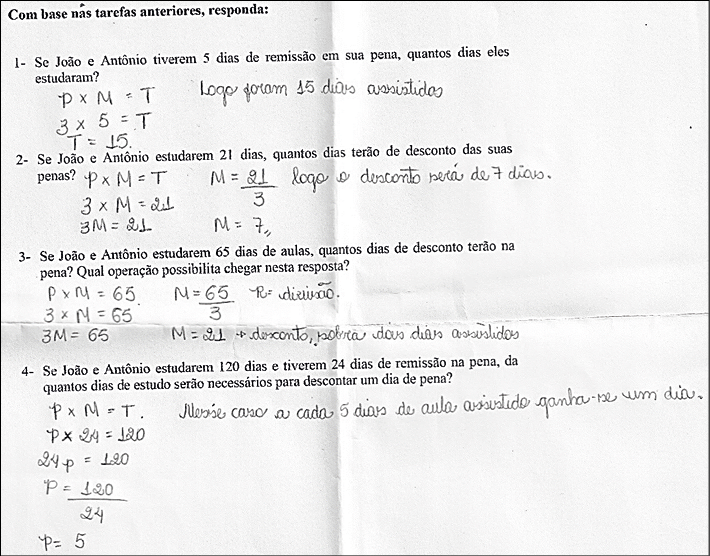 Com base nas tarefas anteriores, responda:
1- Se João e Antônio tiverem 5 dias de remissão em sua pena, quantos dias eles
estudaram?
P x M = T Logo foram 15 dias assistidos
3 x 5 = T
T = 15.
2- Se João e Antônio estudarem 21 dias, quantos dias terão de desconto das suas
penas? P x M = T M = 21/3 logo o desconto será de 7 dias.
3 x M = 21
3M = 21 M = 7,,
3- Se João e Antônio estudarem 65 dias de aulas, quantos dias de desconto terão na
pena? Qual operação possibilita chegar nesta resposta?
P x M = 65 M = 65/3 R= divisão.
3 x M = 65
3M = 65 M = 21 → desconto, sobra dois dias assistidos
4- Se João e Antônio estudarem 120 dias e tiverem 24 dias de remissão na pena, da
quantos dias de estudo serão necessários para descontar um dia de pena?
P x M = T. Nesse caso a cada 5 dias de aula assistido ganha-se um dia.
P x 24 = 120
24p = 120
P = 120
24
p = 5